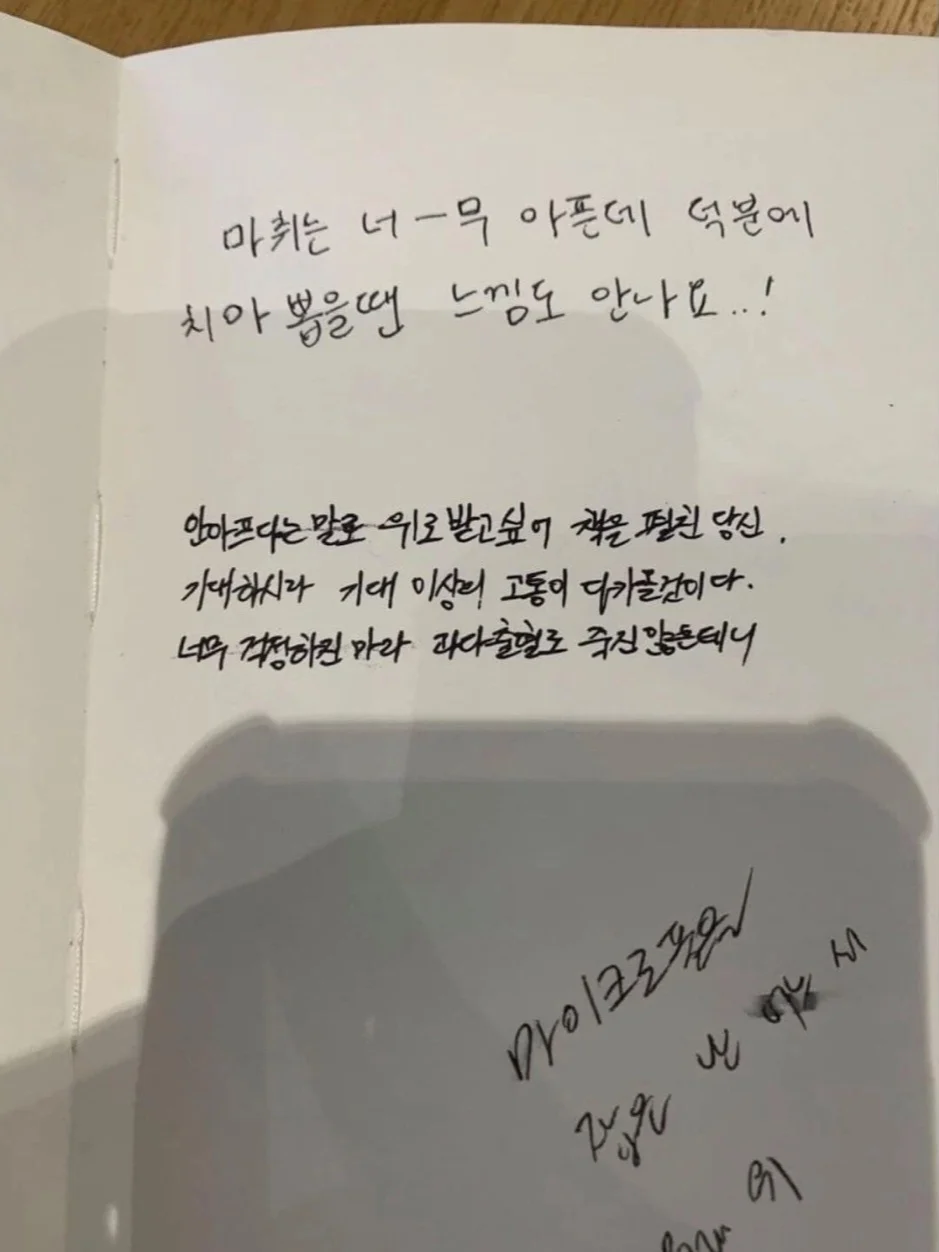 마취는 너ー무 아픈데 덕분에
치아 뽑을땐 느낌도 안나요..!
안아프다는 말로 위로 받고 싶어 책을 펼친 당신.
기대하시라 기대 이상의 고통이 다가올것이다.
너무 걱정하진 마라 과다출혈로 죽진 않을테니
마이크로폰을
잡은 난